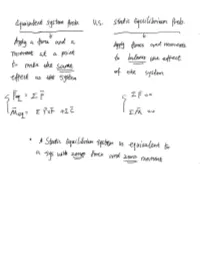 Equivalent system prob. V.S. Static Equilibrium Prob.
Apply a force and a
moment at a point
to make the same
effect as the system
Apply force and moments
to balance the effect
of the system
F̄eq = Σ F̄
M̄eq = Σ r̄×F̄ + Σ C̄
Σ F̄ = 0
Σ M̄ = 0
* A Static Equilibrium System is equivalent to
a sys with zero force and zero moment